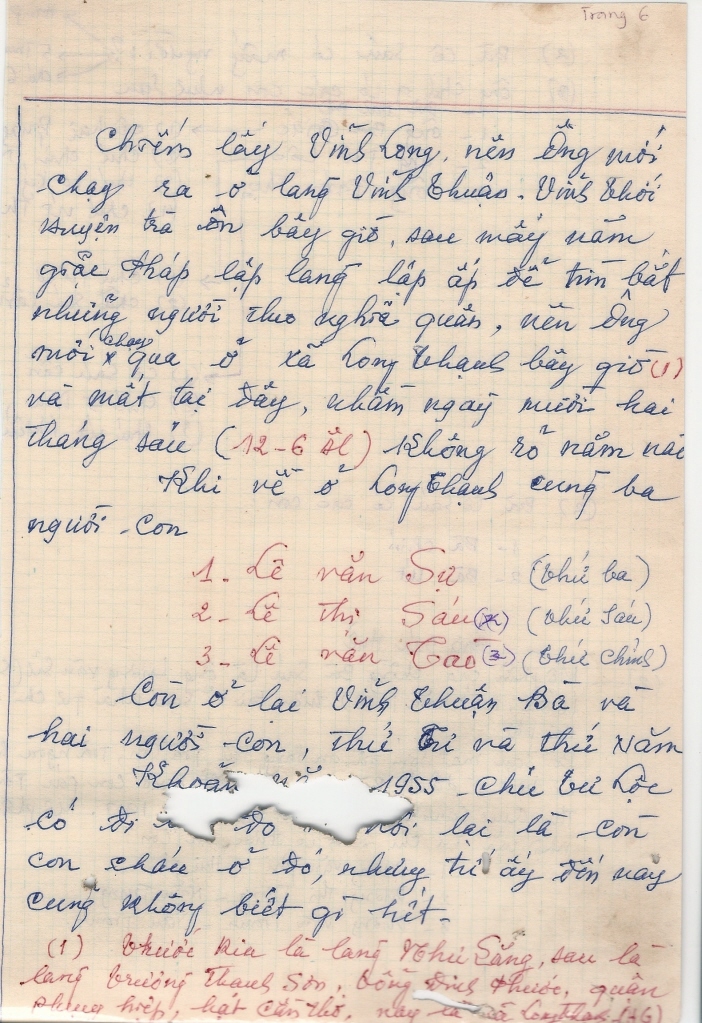 Trang 6
Chiếm lấy Vĩnh Long, nên Ông mới
chạy ra ở lang Vĩnh Thuận - Vĩnh Thới
huyện trà ôn bây giờ, sau mấy năm
giặc Pháp lập lang lập ấp để tìm bắt
những người theo nghĩa quân, nên Ông
mới chạy qua ở xã Long Thạnh bây giờ (1)
và mất tại đây, nhằm ngaỳ mười hai
tháng sáu (12-6 ÂL) Không rõ năm nào
Khi về ở Long Thạnh cung ba
người con
1- Lê văn Sự (thứ ba)
2- Lê Thị Sáu (thứ Sáu)
3- Lê văn Tao (3) (Thứ Chính)
Còn ở lại Vĩnh Thuận Bà và
hai người con, thứ Tư và thứ Năm
Khoản 1955 chú Tư Lộc
có đi lại là còn
con cháu ở đó, nhưng từ ấy đến nay
cung không biết gì hết.
(1) Trước kia là lang Như Lăng, sau là
lang trường Thanh Sơn, tổng Định Phước, quận
phụng hiệp, hạt Cần thơ, nay là xã